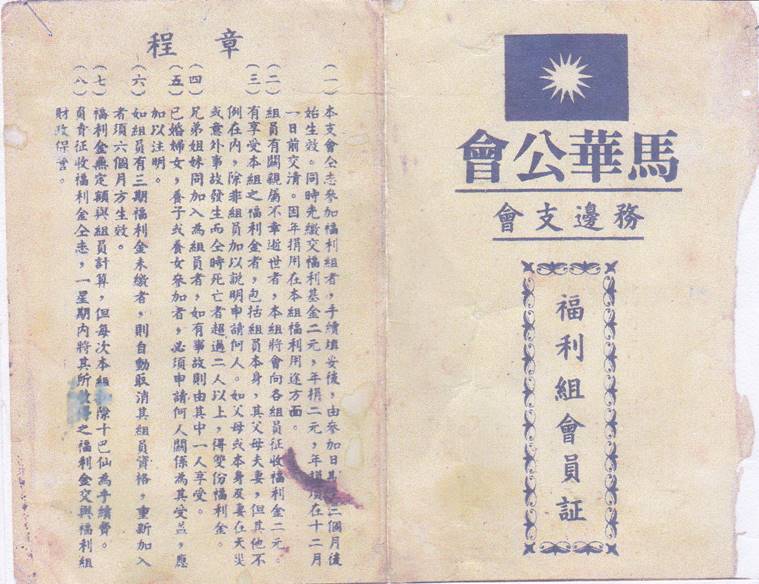 馬華公會
務邊支會
福利組會員証
章程
(一)本支會仝志參加福利組者，手續填妥後，由參加日其三個月後
始生效。同時先繳交福利基金二元，年捐二元，年捐須在十二月
一日前交清。因年捐用在本組福利用途方面。
(二)組員有關親屬不幸逝世者，本組將會向各組員征收福利金二元。
(三)有享受本組之福利金者，包括組員本身，其父母夫妻，但其他不
例在內，除非組員加以說明申請何人。如父母或本身及妻在天災
或意外事故發生而仝時死亡者超過二人以上，得雙份福利金。
(四)兄弟姐妹同加入為組員者，如有事故則由其中一人享受。
(五)已婚婦女，養子或養女參加者，必須申請何人關係為其受益，應
加以注明。
(六)如組員有三期福利金未繳者，則自動取消其組員資格，重新加入
者須六個月方生效。
(七)福利金無定額與組員計算，但每次本組除十巴仙為手續費。
(八)負責征收福利金仝志，一星期內將其所收得之福利金交與福利組
財政保管。